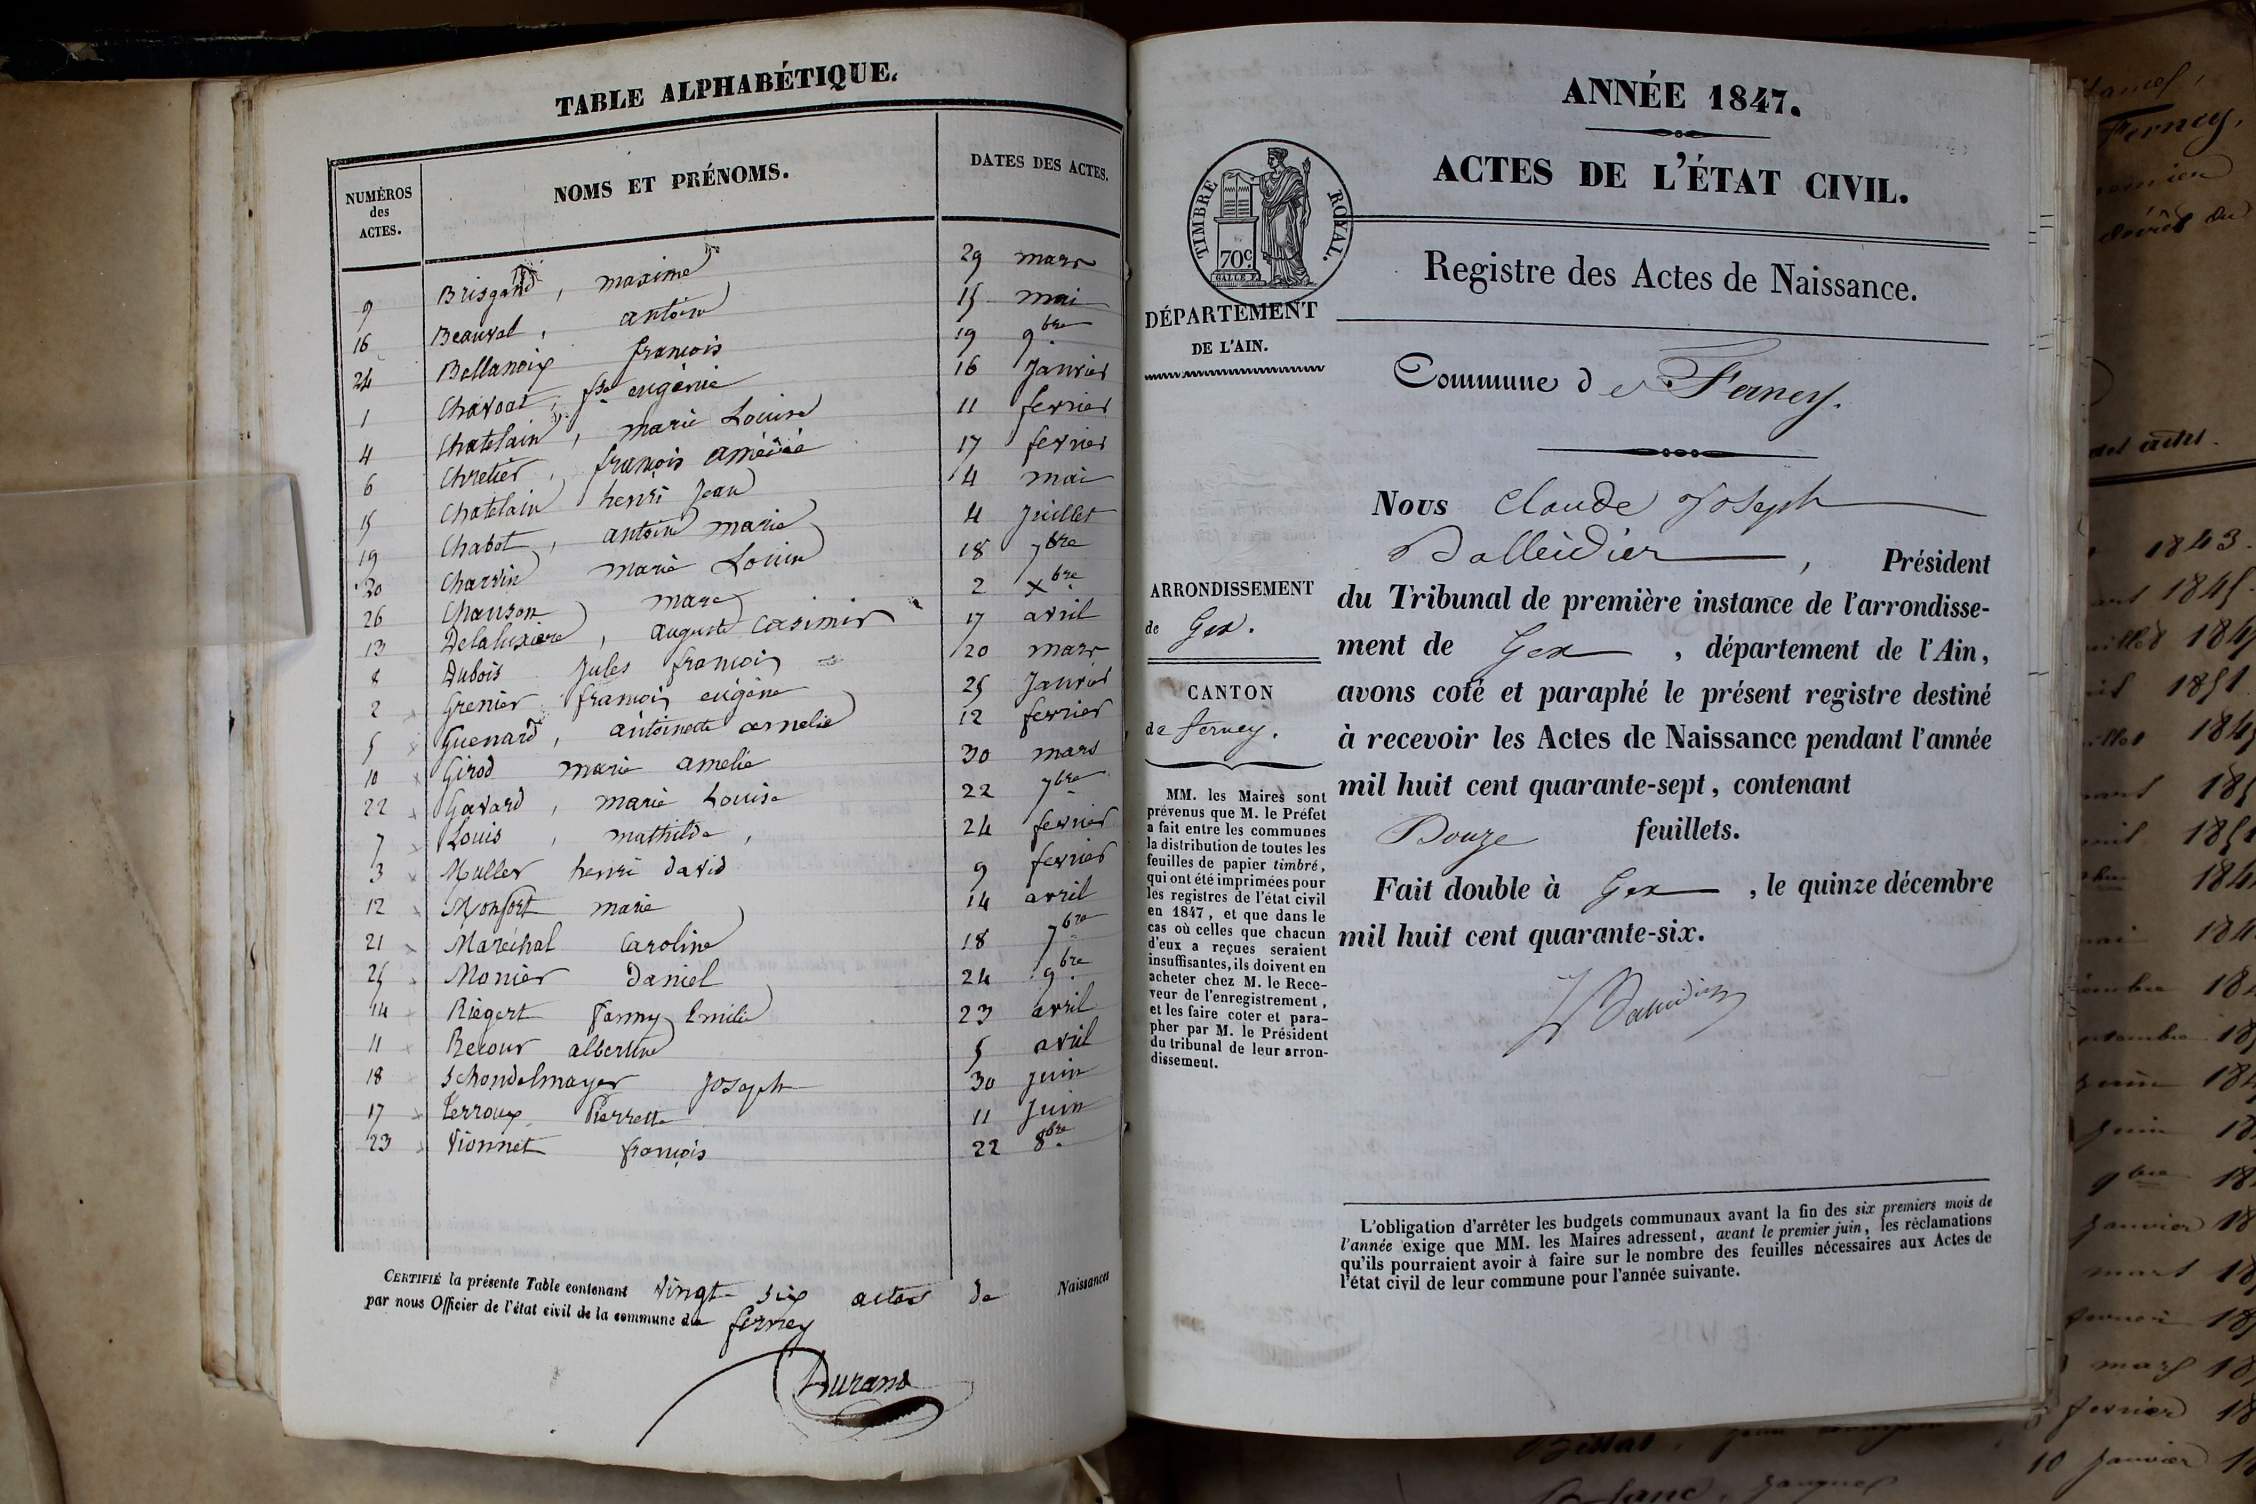 TABLE ALPHABÉTIQUE.
NUMÉROS des ACTES. NOMS ET PRÉNOMS. DATES DES ACTES.
9 Brisgand, maxime 29 mars
16 Beauval, antoine 15 mai
24 Bellanoix françois 19 9bre
1 Chavoat, fse eugénie 16 Janvier
4 Chatelain, marie Louise 11 fevrier
6 Chretier, françois amédée 17 fevrier
15 Chatelain henri Jean 4 mai
19 Chabot, antoine marie 4 Juillet
20 Charvin marie Louise 18 7bre
26 Chanson marc 2 Xbre
13 Delaluxière, auguste casimir 17 avril
8 Dubois Jules françois 20 mars
2 Grenier françois eugène 25 Janvier
5 Guenard, antoinette amelie 12 fevrier
10 Girod marie amelie 30 mars
22 Gavard, marie Louise 22 7bre
7 Louis, mathilde, 24 fevrier
3 Muller henri david 9 fevrier
12 Monfort marie 14 avril
21 Maréchal Caroline 18 7bre
25 Monier Daniel 24 9bre
14 Riegert Fanny Emilie 23 avril
11 Recour albertine 5 avril
18 Schondelmayer Joseph 30 Juin
17 Terroux Pierrette 11 Juin
23 Vionnet françois 22 8bre
CERTIFIÉ la présente Table contenant vingt six actes de Naissances
par nous Officier de l'état civil de la commune de ferney
Durand
ANNÉE 1847.
ACTES DE L'ÉTAT CIVIL.
TIMBRE ROYAL.
70c.
Registre des Actes de Naissance.
DÉPARTEMENT
DE L'AIN.
Commune de Ferney.
Nous Claude Joseph
Balleidier, Président
du Tribunal de première instance de l'arrondisse-
ment de Gex, département de l'Ain,
avons coté et paraphé le présent registre destiné
à recevoir les Actes de Naissance pendant l'année
mil huit cent quarante-sept, contenant
Douze feuillets.
Fait double à Gex, le quinze décembre
mil huit cent quarante-six.
ARRONDISSEMENT
de Gex.
CANTON
de ferney.
MM. les Maires sont
prévenus que M. le Préfet
a fait entre les communes
la distribution de toutes les
feuilles de papier timbré,
qui ont été imprimées pour
les registres de l'état civil
en 1847, et que dans le
cas où celles que chacun
d'eux a reçues seraient
insuffisantes, ils doivent en
acheter chez M. le Rece-
veur de l'enregistrement,
et les faire coter et para-
pher par M. le Président
du tribunal de leur arron-
dissement.
L'obligation d'arrêter les budgets communaux avant la fin des six premiers mois de
l'année exige que MM. les Maires adressent, avant le premier juin, les réclamations
qu'ils pourraient avoir à faire sur le nombre des feuilles nécessaires aux Actes de
l'état civil de leur commune pour l'année suivante.
Ferney,
1843.
10 Janvier